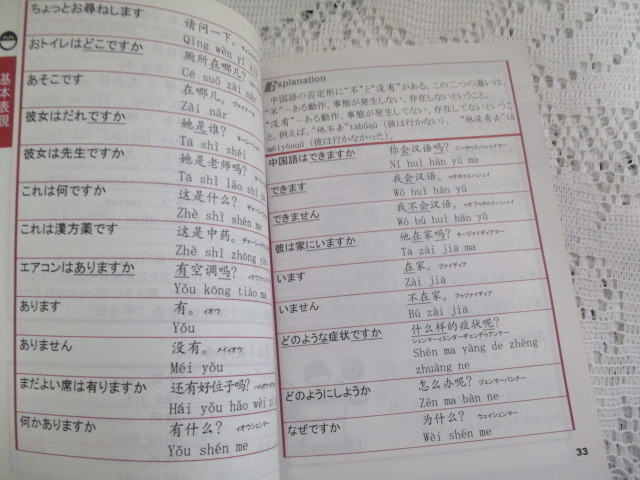 基本表現
ちょっとお尋ねします
请问一下。
Qǐng wèn yí
おトイレはどこですか
厕所在哪儿?
Cè suǒ zài nǎr
あそこです
在哪儿。
Zài nǎr
彼女はだれですか
她是谁?
Tā shì shéi
彼女は先生ですか
她是老师吗?
Tā shì lǎo shī
これは何ですか
这是什么?
Zhè shì shén me
これは漢方薬です
这是中药。
Zhè shì zhōng
エアコンはありますか
有空调吗?
Yǒu kōng tiáo ma
あります
有。イオウ
Yǒu
ありません
没有。メイイオウ
Méi yǒu
まだよい席は有りますか
还有好位子吗?
Hái yǒu hǎo wèi
何かありますか
有什么?イオウシェンマー
Yǒu shén me
Explanation
中国語の否定形に“不”と“没有”がある。この二つの違いは、
“不”−ある動作、事態が発生しない、存在しないということ。
“没有”−ある動作、事態が発生してない、存在してないというこ
と。例えば、“他不去”tābúqù（彼は行かない）、“他没去”tā
méiyǒuqù（彼は行かなかった）。
中国語はできますか
你会汉语吗?
Nǐ huì hàn yǔ ma
できます
我会汉语。
Wǒ huì hàn yǔ
できません
我不会汉语。
Wǒ bú huì hàn yǔ
彼は家にいますか
他在家吗?
Tā zài jiā ma
います
在家。
Zài jiā
いません
不在家。
Bú zài jiā
どのような症状ですか
什么样的症状呢?
Shén ma yàng de zhèng
zhuàng ne
どのようにしようか
怎么办呢?
Zěn ma bàn ne
なぜですか
为什么?ウェイシェンマー
Wèi shén me
33